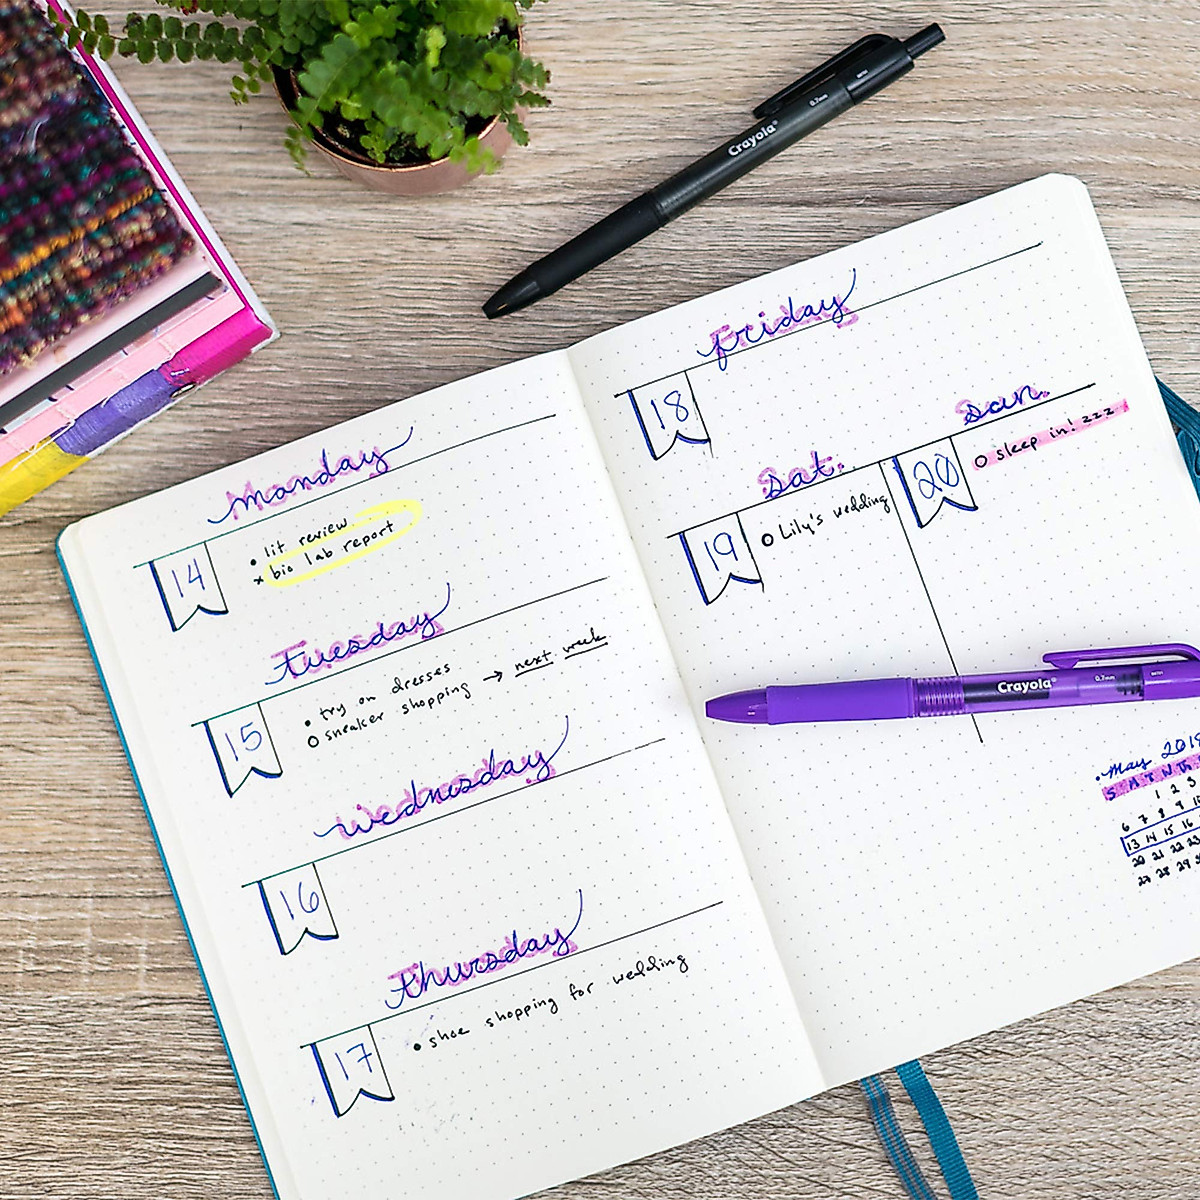 Crayola 0.7mm
monday
14
• lit. review
x bio lab report
tuesday
15
• try on dresses
o sneaker shopping → next week
wednesday
16
thursday
17
• shoe shopping for wedding
friday
18
sat.
19
o Lily's wedding
sun.
20
o sleep in! zzz
Crayola 0.7mm
May 2019
S M T W Th
1 2 3
6 7 8 9 10
13 14 15 16
20 21 22 23
27 28 29